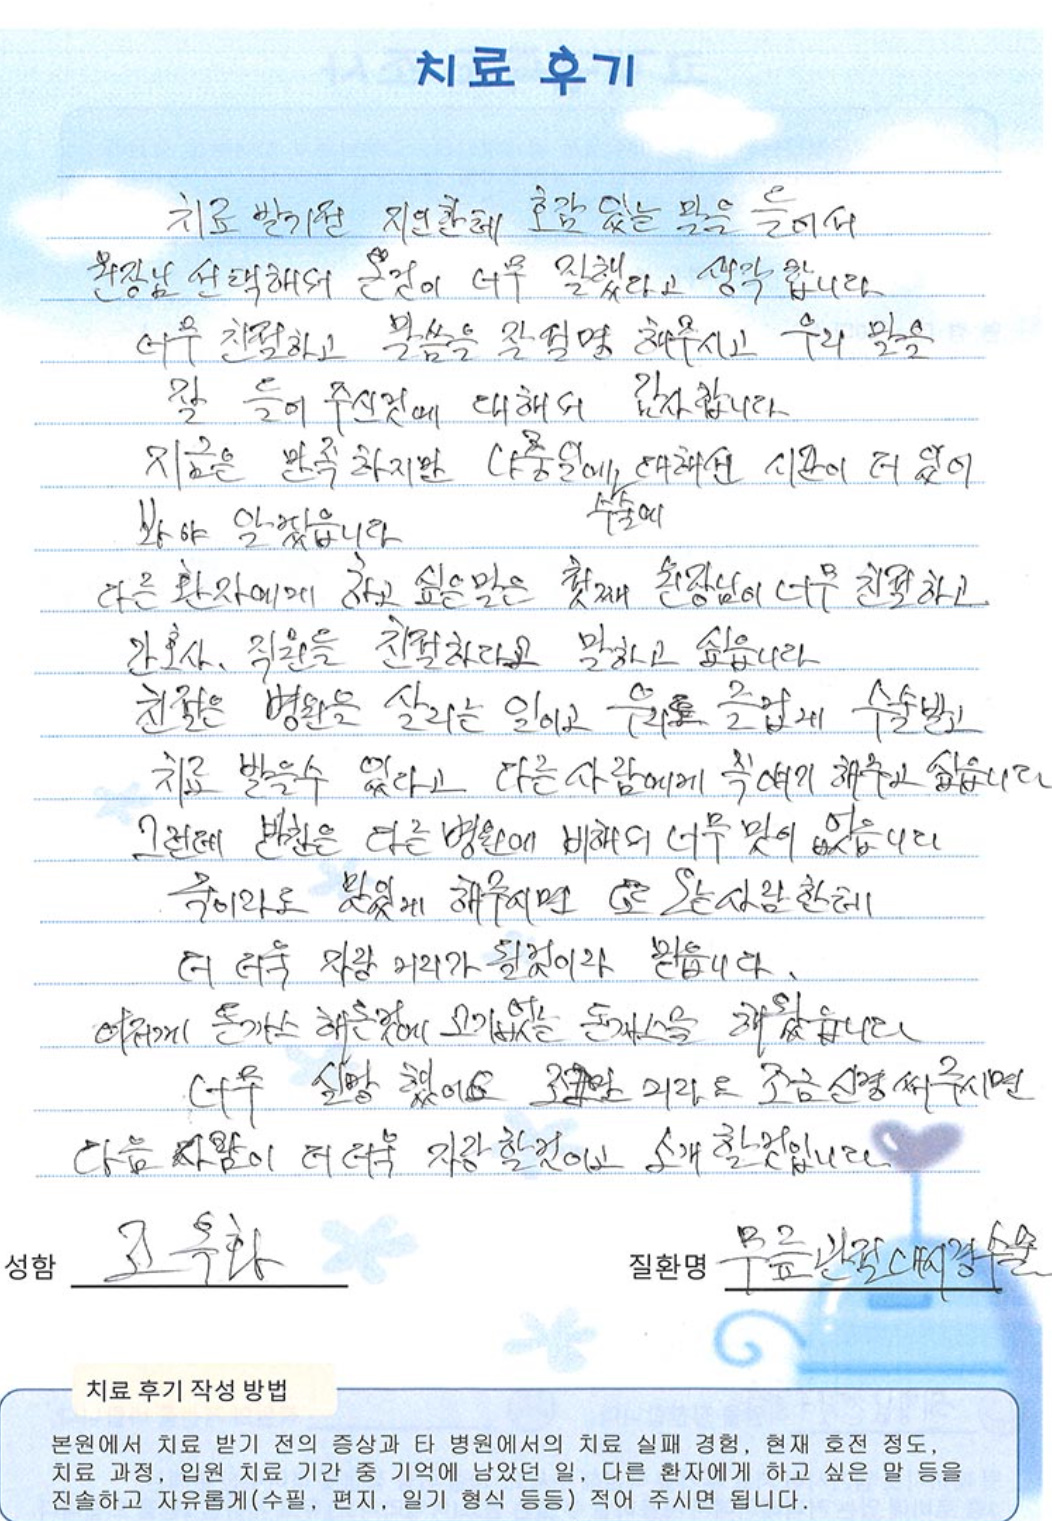 치료 후기
치료 받기전 지인한테 호감 있는 말을 들어서
원장님 선택해서 온것이 너무 잘했다고 생각 합니다
너무 친절하고 말씀을 잘 설명 해주시고 우리 말을
잘 들어 주신것에 대해서 감사 합니다
지금은 만족 하지만 나중일에 대해선 시간이 더 있어
수술에
봐야 알겠습니다
다른 환자에게 하고 싶은말은 첫째 원장님이 너무 친절하고
간호사, 직원들 친절하다고 말하고 싶습니다
친절은 병원을 살리는 일이고 우리도 즐겁게 수술받고
치료 받을수 있다고 다른 사람에게 꼭 얘기 해주고 싶습니다
그런데 반찬은 다른 병원에 비해서 너무 맛이 없습니다
국이라도 맛있게 해주시면 또 오는 사람한테
더 더욱 자랑 거리가 될것이라 믿습니다.
어저께 돈까스 해준것에 고기없는 돈까스을 해왔습니다
너무 실망 했어요 조금만 거리도 조금 신경 써주시면
다음 사람이 더 더욱 자랑 할것이고 소개 할것입니다
성함 조옥화
질환명 무릎관절내시경수술
치료 후기 작성 방법
본원에서 치료 받기 전의 증상과 타 병원에서의 치료 실패 경험, 현재 호전 정도,
치료 과정, 입원 치료 기간 중 기억에 남았던 일, 다른 환자에게 하고 싶은 말 등을
진솔하고 자유롭게(수필, 편지, 일기 형식 등등) 적어 주시면 됩니다.